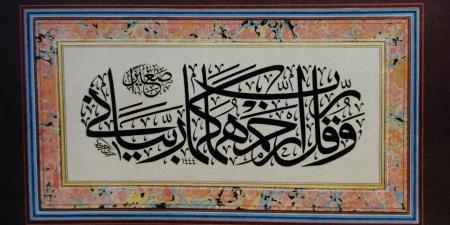 وَقُل رَّبِّ ارْحَمْهُمَا كَمَا رَبَّيَانِي
صَغِيرًا
١٤٤٤